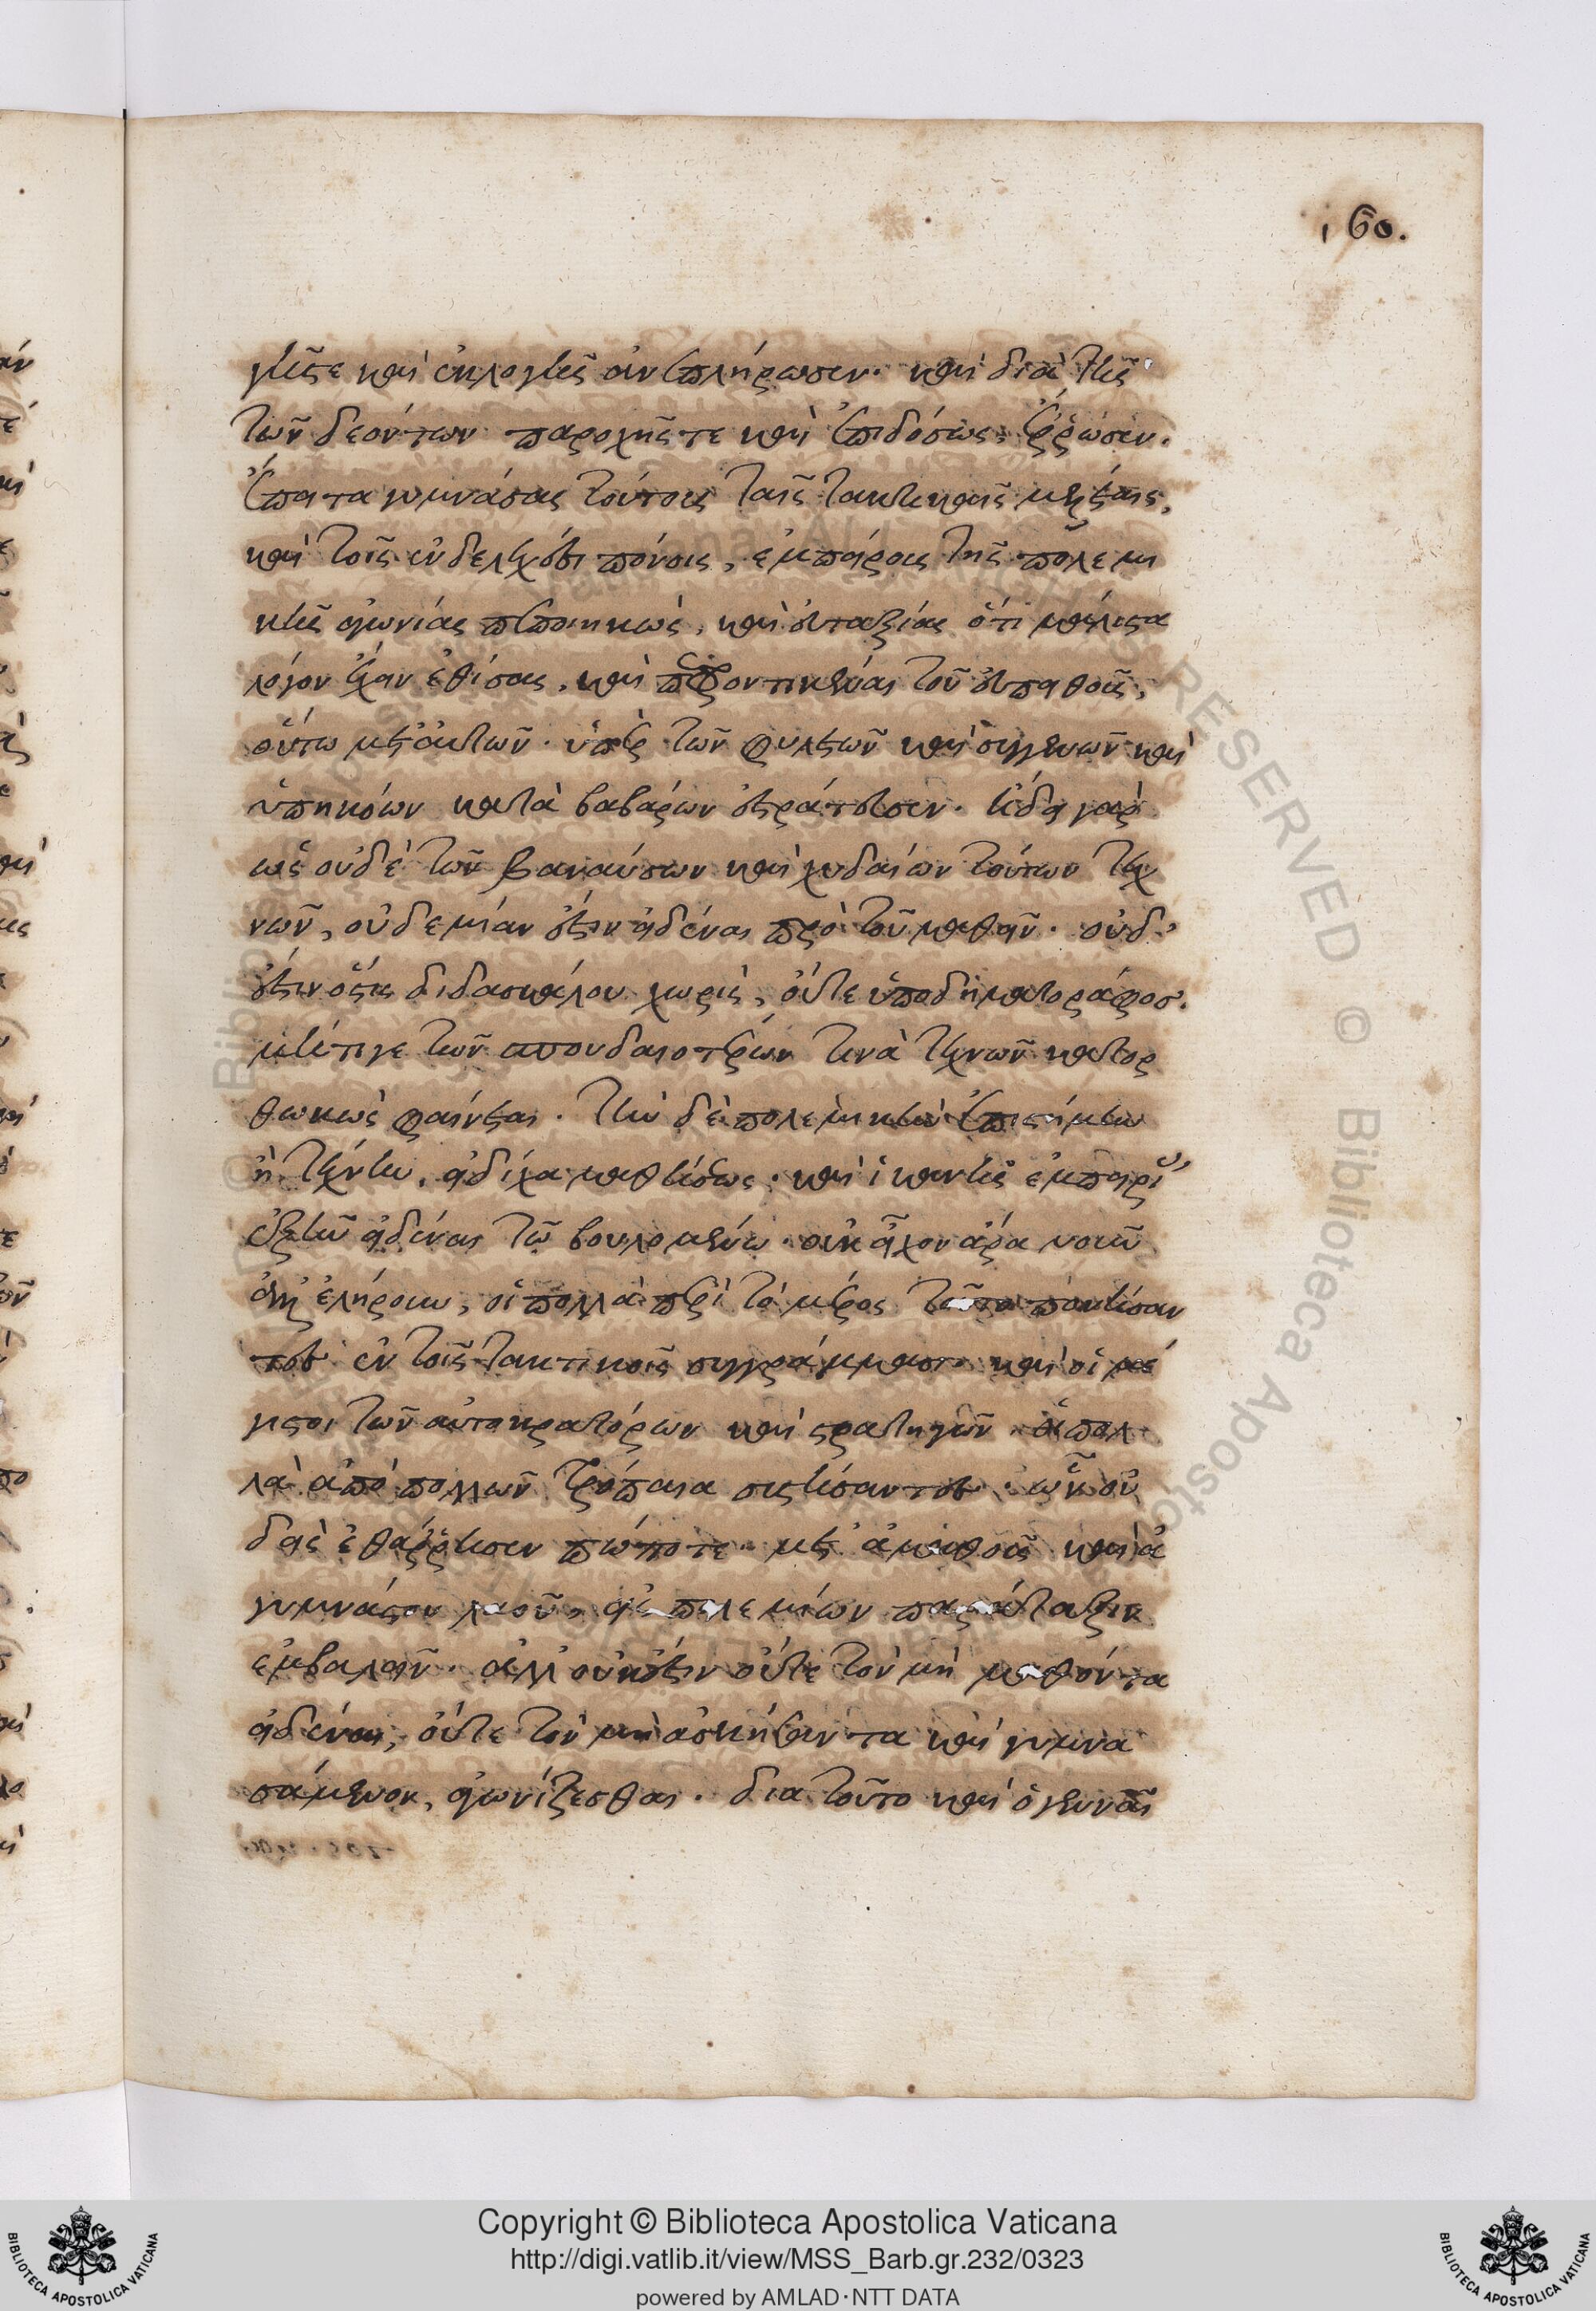 160.
γῆς τε καὶ ἐκλογῆς ἀνεπλήρωσεν· καὶ διὰ τῆς
τῶν δεόντων παροχῆς τε καὶ ἐπιδόσεως, ἐρρωσεν.
ἔπειτα γυμνάσας τούτους ταῖς τακτικαῖς μελέταις,
καὶ τοῖς ἐνδελεχέσι πόνοις, ἐμπείρους τῆς πολεμι
κῆς ἀγωνίας πεποιηκὼς, καὶ εὐταξίας ὅτι μάλιστα
λόγον ἔχειν ἐθίσας, καὶ πεφροντικέναι τοῦ εὐπειθοῦς,
οὕτω μετ' αὐτῶν· ὑπὲρ τῶν φυλετῶν καὶ συγγενῶν καὶ
ὑπηκόων κατὰ βαρβάρων ἐστράτευσεν. ἤδει γὰρ
ὡς οὐδὲ τῶν βαναύσων καὶ χυδαίων τούτων τεχ
νῶν, οὐδεμίαν ἔστιν εἰδέναι πρὸ τοῦ μαθεῖν. οὐδ'
ἔστιν ὅστις διδασκάλου χωρὶς, οὔτε ὑποδηματοράφος.
μήτιγε τῶν σπουδαιοτέρων τινὰ τεχνῶν κατορ
θωκὼς φαίνεται. τὴν δὲ πολεμικὴν ἐπιστήμην
ἢ τέχνην, δίχα μαθήσεως· καὶ ἱκανῆς ἐμπειρί
ἔξεστιν εἰδέναι τῷ βουλομένῳ. οὐκ εἶχον ἄρα νοῦν
ἀλλ' ἐλήρουν, οἱ πολλὰ περὶ τὸ μέρος τοῦτο πονήσαν
τες ἐν τοῖς τακτικοῖς συγγράμμασι· καὶ οἱ μέ
γιστοι τῶν αὐτοκρατόρων καὶ στρατηγῶν οἱ πολ
λὰ ἀπὸ πολλῶν τρόπαια στήσαντες· ὧν οὐ
δεὶς ἐθάρρησεν πώποτε μετ' ἀμαθοῦς καὶ ἀ
γυμνάστου λαοῦ, εἰς πολεμίων παράταξιν
ἐμβαλεῖν. ἀλλ' οὐκ ἔστιν οὔτε τὸν μὴ μαθόντα
εἰδέναι, οὔτε τὸν μὴ ἀσκήσαντα καὶ γυμνα
σάμενον, ἀγωνίζεσθαι. διὰ τοῦτο καὶ ὁ γενναῖος
Copyright © Biblioteca Apostolica Vaticana
http://digi.vatlib.it/view/MSS_Barb.gr.232/0323
powered by AMLAD·NTT DATA
BIBLIOTECA APOSTOLICA VATICANA
BIBLIOTECA APOSTOLICA VATICANA